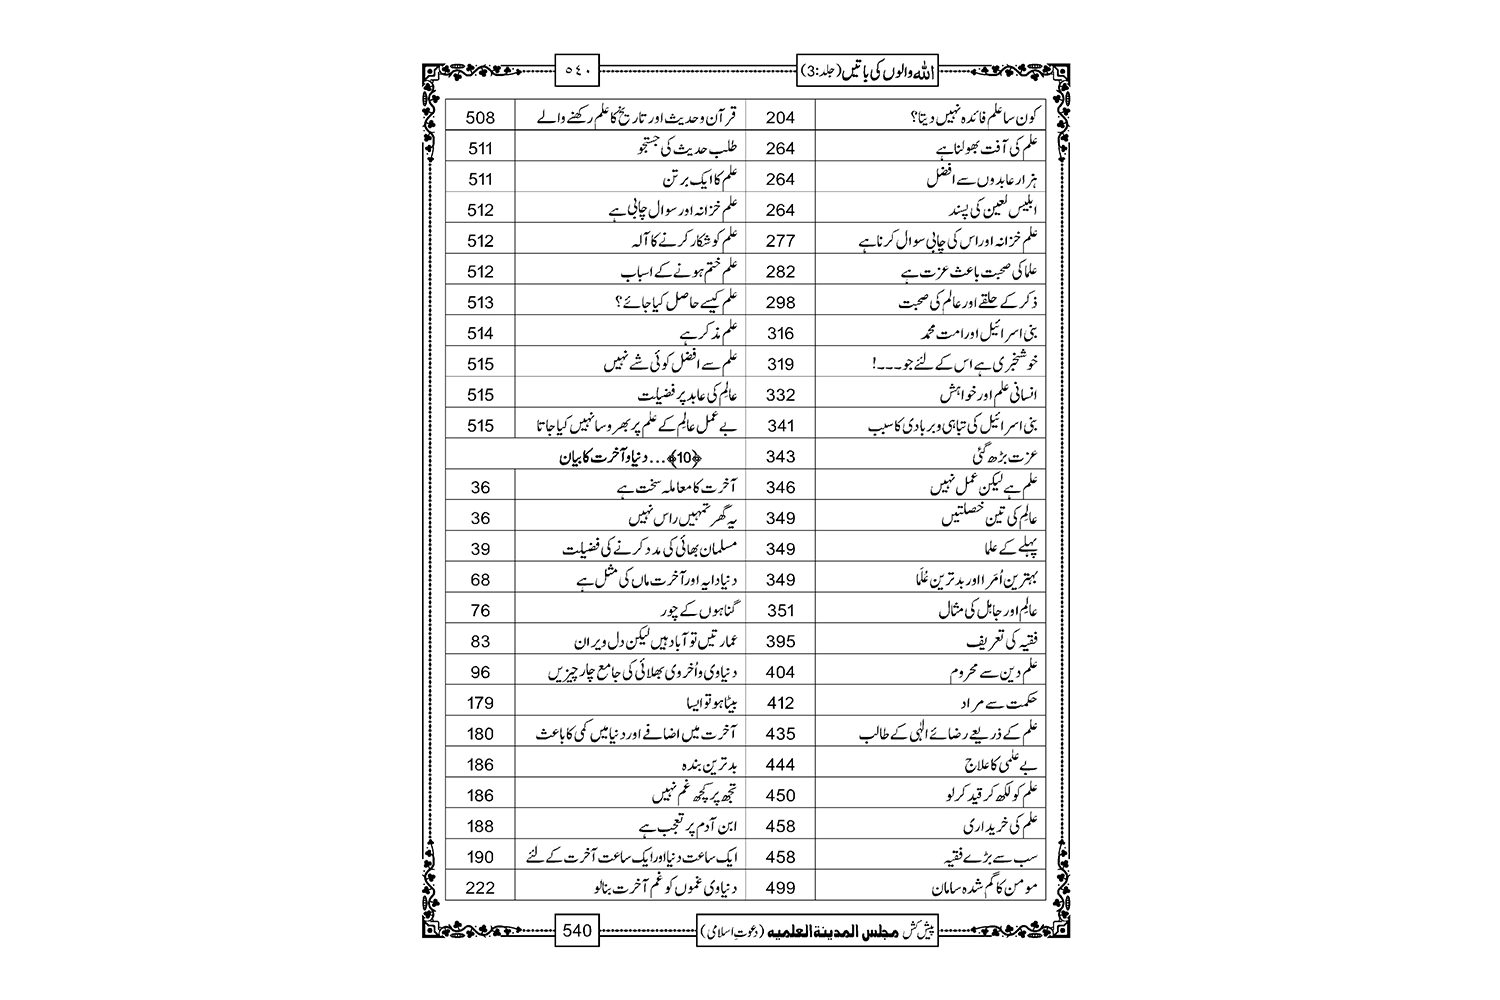 اللہ والوں کی باتیں (جلد:3)
٥٤٠
کون سا علم فائدہ نہیں دیتا؟ 204
علم کی آفت بھولنا ہے 264
ہزار عابدوں سے افضل 264
ابلیس لعین کی پسند 264
علم خزانہ اور اس کی چابی سوال کرنا ہے 277
علما کی صحبت باعث عزت ہے 282
ذکر کے حلقے اور عالم کی صحبت 298
بنی اسرائیل اور امت محمد 316
خوشخبری ہے اس کے لئے جو۔۔۔! 319
انسانی علم اور خواہش 332
بنی اسرائیل کی تباہی و بربادی کا سبب 341
عزت بڑھ گئی 343
علم ہے لیکن عمل نہیں 346
عالِم کی تین خصلتیں 349
پہلے کے علما 349
بہترین اُمَرا اور بدترین عُلَما 349
عالِم اور جاہل کی مثال 351
فقیہ کی تعریف 395
علم دین سے محروم 404
حکمت سے مراد 412
علم کے ذریعے رضائے الٰہی کے طالب 435
بے علمی کا علاج 444
علم کو لکھ کر قید کر لو 450
علم کی خریداری 458
سب سے بڑے فقیہ 458
مومن کا گم شدہ سامان 499
قرآن و حدیث اور تاریخ کا علم رکھنے والے 508
طلب حدیث کی جستجو 511
علم کا ایک برتن 511
علم خزانہ اور سوال چابی ہے 512
علم کو شکار کرنے کا آلہ 512
علم ختم ہونے کے اسباب 512
علم کیسے حاصل کیا جائے؟ 513
علم مذکر ہے 514
علم سے افضل کوئی شے نہیں 515
عالِم کی عابد پر فضیلت 515
بے عمل عالِم کے علم پر بھروسا نہیں کیا جاتا 515
﴿10﴾... دنیا و آخرت کا بیان
آخرت کا معاملہ سخت ہے 36
یہ گھر تمہیں راس نہیں 36
مسلمان بھائی کی مدد کرنے کی فضیلت 39
دنیا دایہ اور آخرت ماں کی مثل ہے 68
گناہوں کے چور 76
عمارتیں تو آباد ہیں لیکن دل ویران 83
دنیاوی و اُخروی بھلائی کی جامع چار چیزیں 96
بیٹا ہو تو ایسا 179
آخرت میں اضافے اور دنیا میں کمی کا باعث 180
بدترین بندہ 186
تجھ پر کچھ غم نہیں 186
ابن آدم پر تعجب ہے 188
ایک ساعت دنیا اور ایک ساعت آخرت کے لئے 190
دنیاوی غموں کو غم آخرت بنا لو 222
پیش کش مجلس المدینۃ العلمیہ (دعوتِ اسلامی)
540